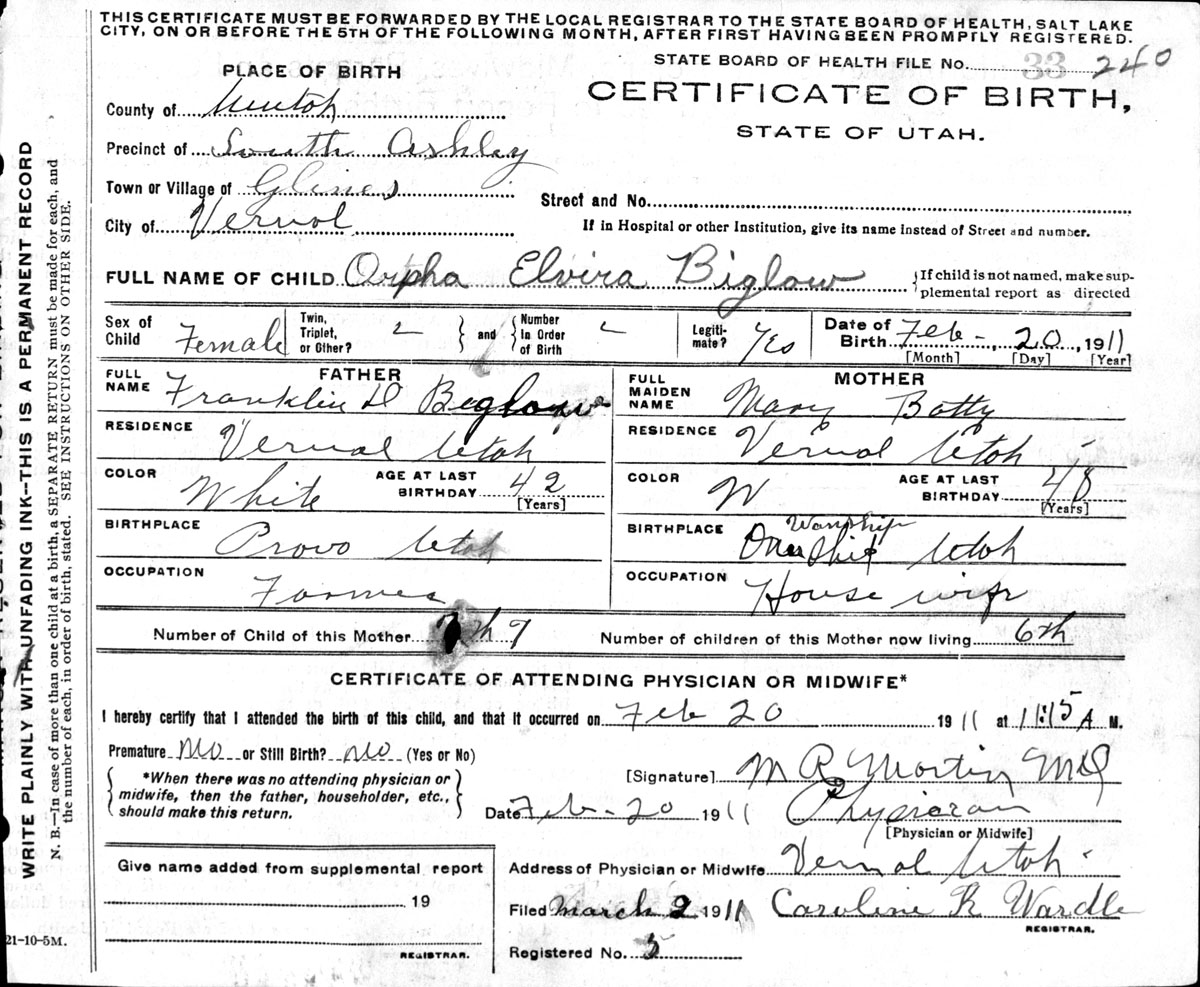 THIS CERTIFICATE MUST BE FORWARDED BY THE LOCAL REGISTRAR TO THE STATE BOARD OF HEALTH, SALT LAKE
CITY, ON OR BEFORE THE 5TH OF THE FOLLOWING MONTH, AFTER FIRST HAVING BEEN PROMPTLY REGISTERED.
STATE BOARD OF HEALTH FILE No. 33 240
PLACE OF BIRTH
CERTIFICATE OF BIRTH,
STATE OF UTAH.
County of Uintah
Precinct of South Ashley
Town or Village of Glines
Street and No.
City of Vernal
If in Hospital or other Institution, give its name instead of Street and number.
FULL NAME OF CHILD Orpha Elvira Biglow {If child is not named, make sup-
plemental report as directed
Sex of Child Female Twin, Triplet, or Other? and Number in Order of Birth Legiti-mate? Yes Date of Birth Feb - 20, 1911
[Month] [Day] [Year]
FATHER
FULL NAME Franklin D Biglow
RESIDENCE Vernal Utah
COLOR White AGE AT LAST BIRTHDAY 42
[Years]
BIRTHPLACE Provo Utah
OCCUPATION Farmer
MOTHER
FULL MAIDEN NAME Mary Batty
RESIDENCE Vernal Utah
COLOR W AGE AT LAST BIRTHDAY
[Years]
Wanship
BIRTHPLACE Utah
OCCUPATION House wife
Number of Child of this Mother 7 Number of children of this Mother now living 6th
CERTIFICATE OF ATTENDING PHYSICIAN OR MIDWIFE*
I hereby certify that I attended the birth of this child, and that it occurred on Feb 20 1911 at 11:15 A M.
Premature No or Still Birth? No (Yes or No)
*When there was no attending physician or
midwife, then the father, householder, etc.,
should make this return.
[Signature] M P Martin MD
Date Feb - 20 1911 Physician
[Physician or Midwife]
Give name added from supplemental report
19
REGISTRAR.
Address of Physician or Midwife Vernal Utah
Filed March 2 1911 Caroline K Wardle
REGISTRAR.
Registered No. 5
21-10-5M.
WRITE PLAINLY WITH UNFADING INK--THIS IS A PERMANENT RECORD
N. B.—In case of more than one child at a birth, a SEPARATE RETURN must be made for each, and
the number of each, in order of birth, stated. SEE INSTRUCTIONS ON OTHER SIDE.